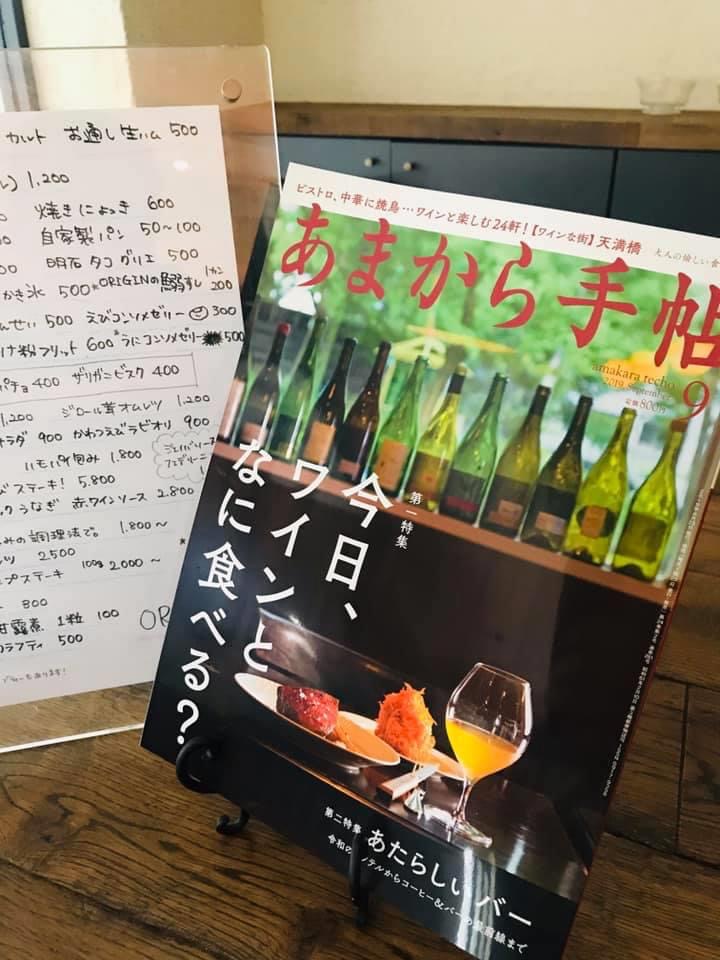 カルト お通し生ハム 500
1,200
焼きにょっき 600
自家製パン 50~100
明石タコグリエ 500
かき氷 500 ORIGINの鰯すし 1カン 200
500 えびコンソメゼリー 300
粉フリット 600 うにコンソメゼリー 500
400 ザリガニビスク 400
1,200 ジロール茸オムレツ 1,200
900 かわつえびラビオリ 900
ハモパイ包み 1.800
ステーキ! 5.800
うなぎ 赤ワインソース 2.800
の調理法で。 1.800~
2500
ステーキ 100g 2000~
800
甘露煮 1粒 100
クラフティ 500
もあります!
ビストロ、中華に焼鳥…ワインと楽しむ24軒!【ワインな街】天満橋
大人の愉しい食
あまから手帖
amakara techo
2019 September
定価800円
9
第一特集
今日、
ワインと
なに食べる?
第二特集 あたらしいバー
令和の
テルからコーヒー&バー
前線まで